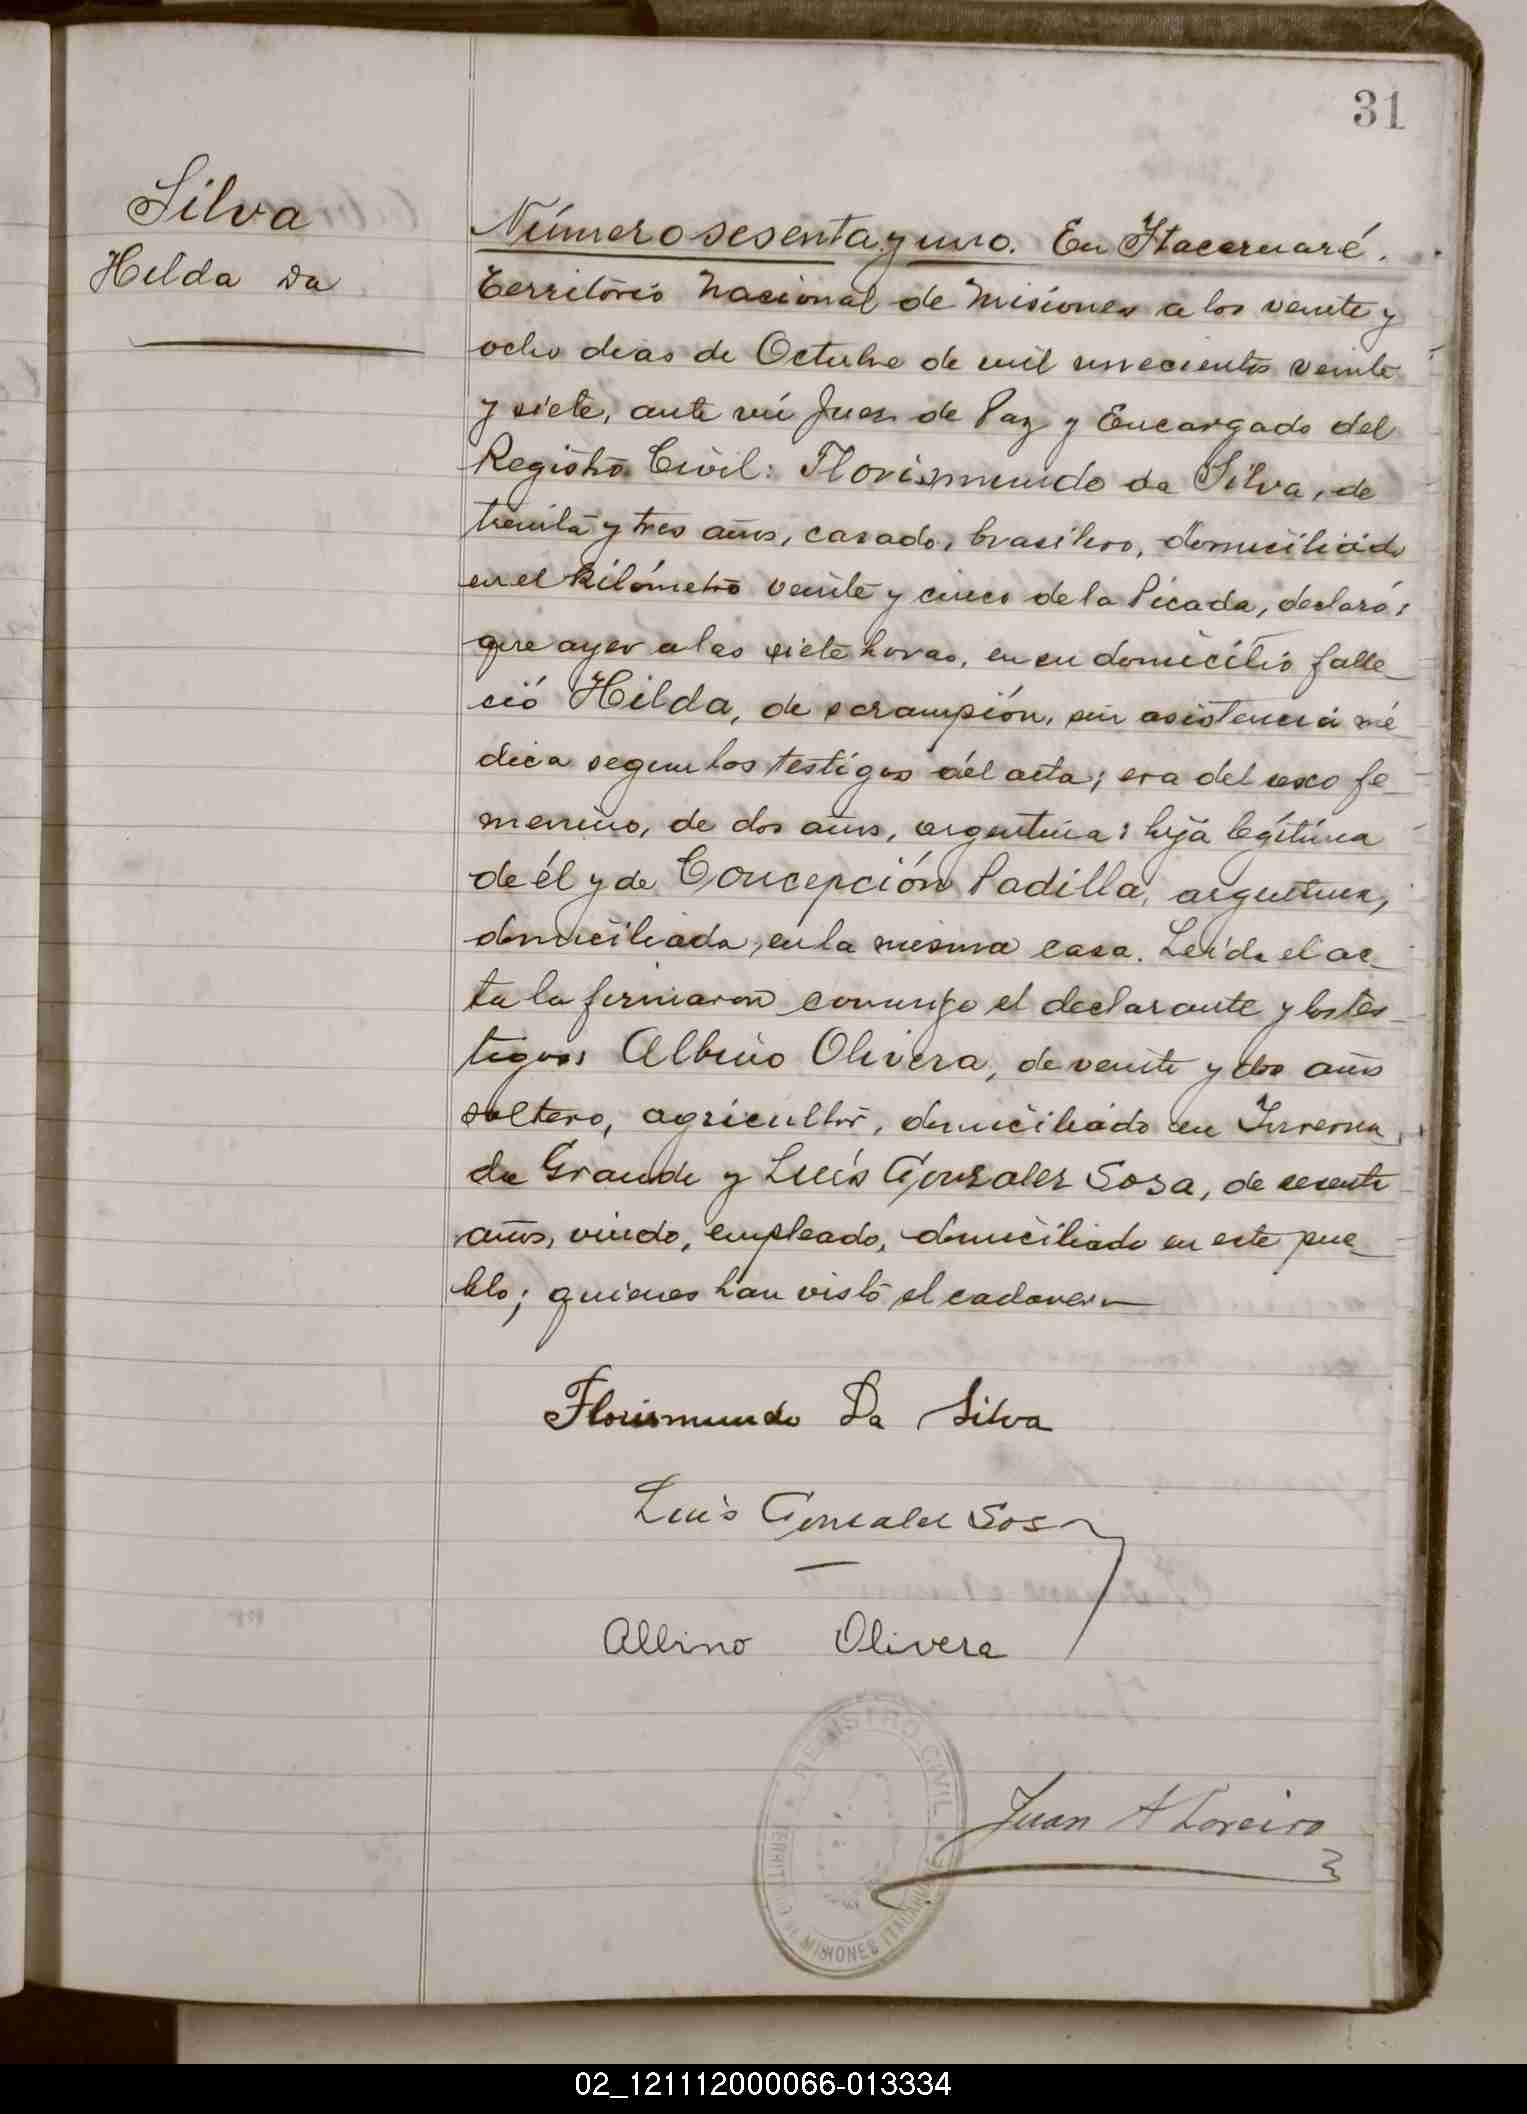 31
Silva
Hilda Da
Número sesenta y uno. En Itacaruaré.
Territorio Nacional de Misiones a los veinte y
ocho dias de Octubre de mil novecientos veinte
y siete, ante mí Juez de Paz y Encargado del
Registro Civil: Florismundo da Silva, de
treinta y tres años, casado, brasilero, domiciliado
en el kilómetro veinte y cinco de la Picada, declaró:
que ayer a las siete horas, en su domicilio falle_
ció Hilda, de sarampión, sin asistencia mé_
dica segun los testigos del acta; era del sexo fe_
menino, de dos años, argentina: hija legítima
de él y de Concepción Padilla, argentina,
domiciliada, en la misma casa. Leida el ac_
ta la firmaron conmigo el declarante y los tes_
tigos: Albino Olivera, de veinte y dos años
soltero, agricultor, domiciliado en Inverna_
da Grande y Luis Gonzalez Sosa, de sesenta
años, viudo, empleado, domiciliado en este pue_
blo; quienes han visto el cadaver.
Florismundo Da Silva
Luis Gonzalez Sosa
Albino Olivera
REGISTRO CIVIL
MISIONES
Juan A Loreiro
02_121112000066-013334